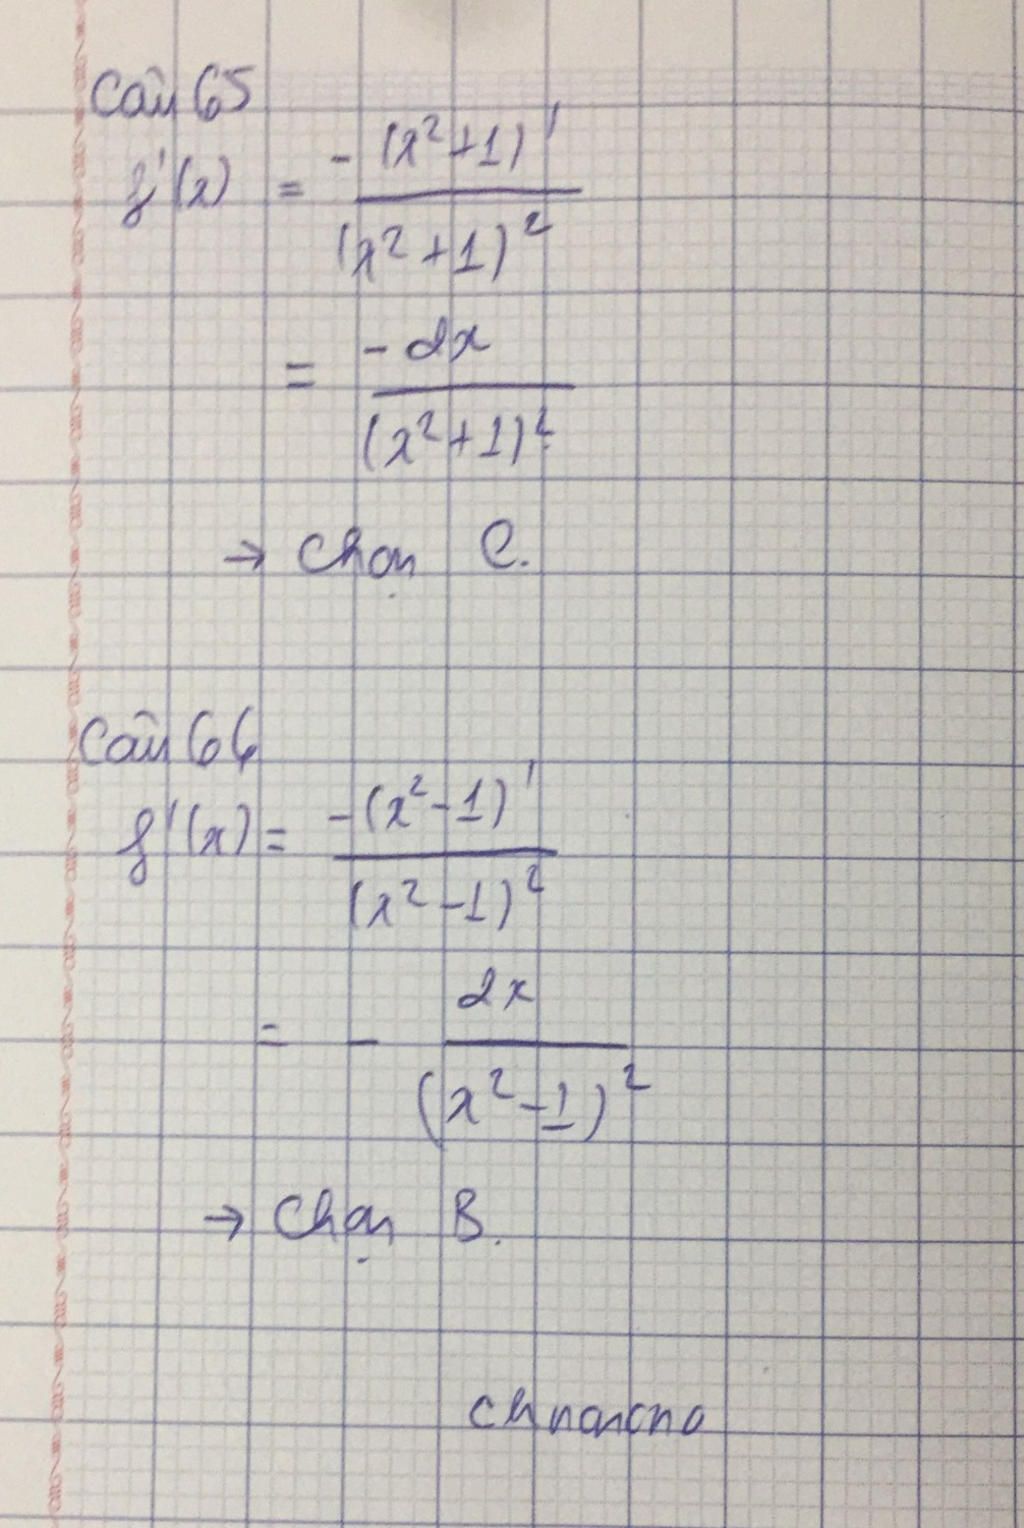 Câu 65
f'(x) = -(x²+1)' / (x²+1)²
= -2x / (x²+1)²
→ Chọn C.
Câu 66
f'(x) = -(x²-1)' / (x²-1)²
= - 2x / (x²-1)²
→ Chọn B.